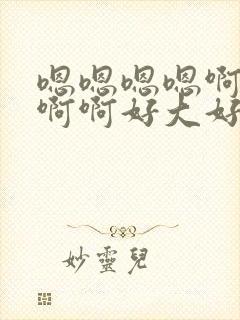 嗯嗯嗯嗯啊
啊啊好大好
妙靈兒